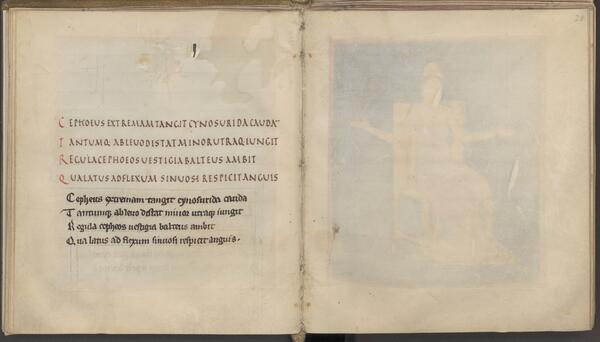 CEPHOEUS EXTREMAM TANGIT CYNOSURIDA CAUDA
TANTUMQ: AB LEUO DISTAT MINOR UTRAQ: IUNGIT
REGULA CEPHOEOS UESTIGIA BALTEUS AMBIT
QUA LATUS AD FLEXUM SINUOSI RESPICIT ANGUIS
Cepheus extremam tangit cynosurida cauda
Tantumq; ab leuo distat minor utraq; iungit
Regula cepheos vestigia balteus ambit
Qua latus ad flexum sinuosi respicit anguis.